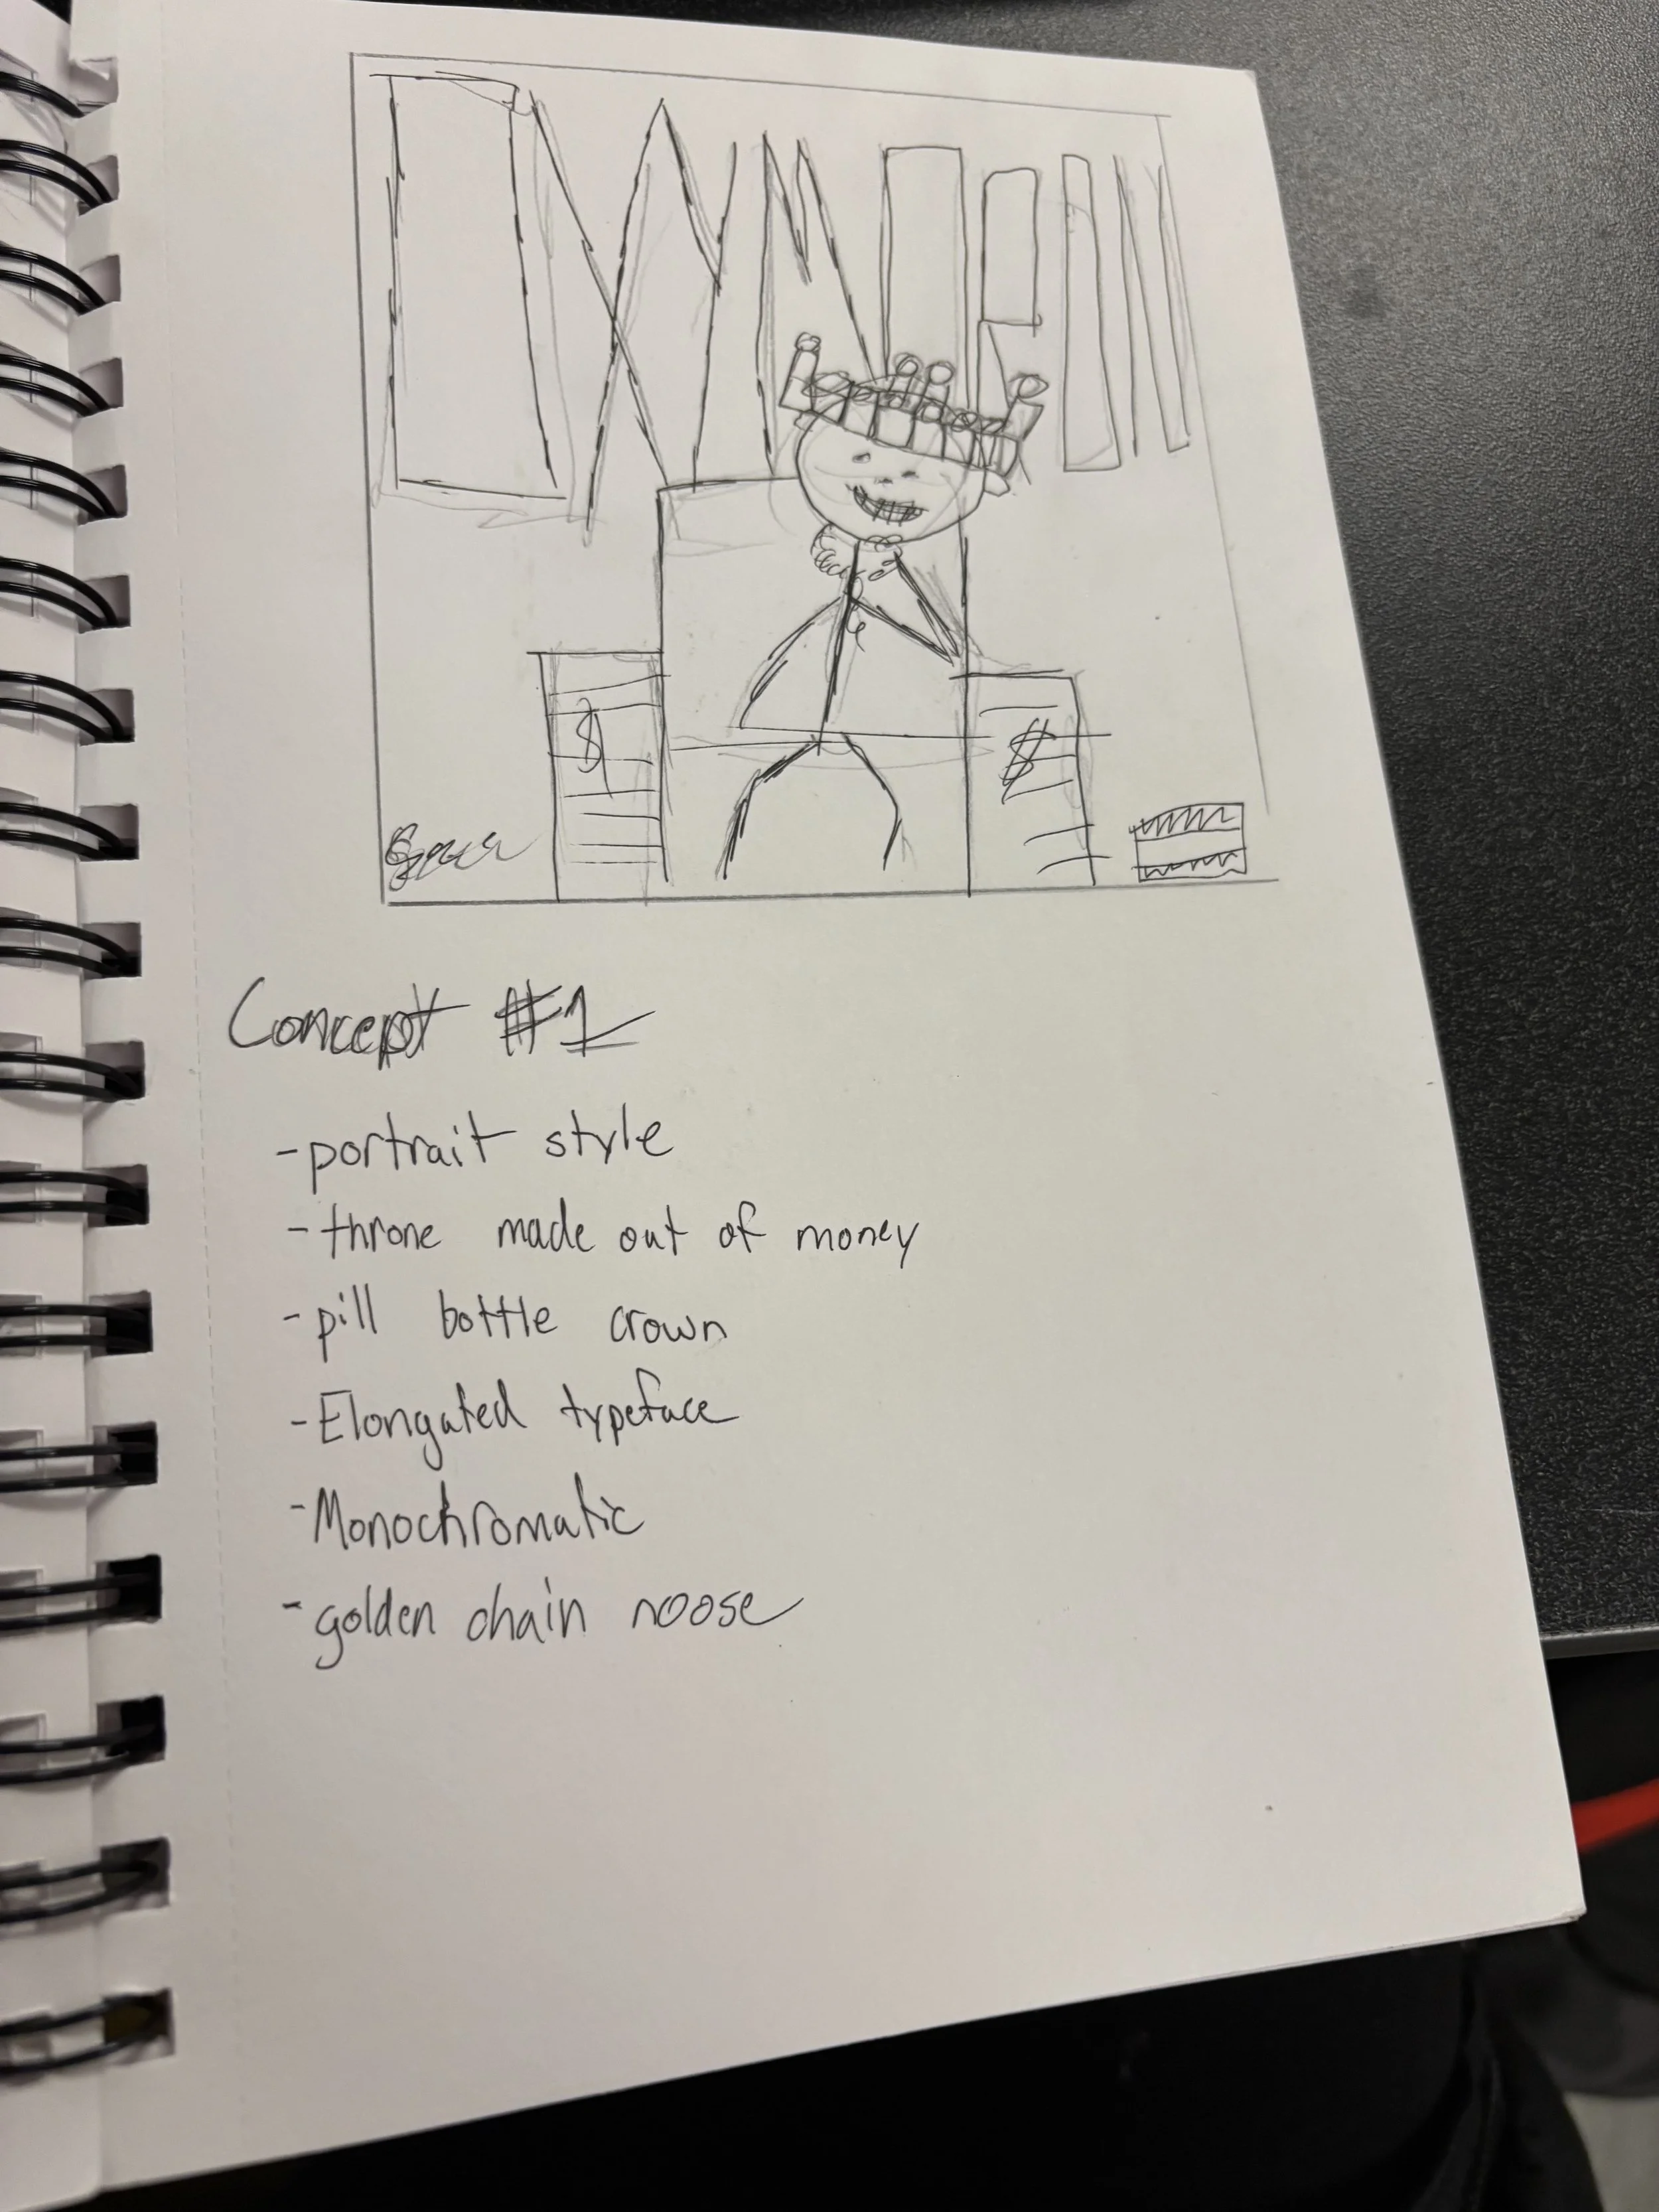 $
$
Concept #1
- portrait style
- throne made out of money
- pill bottle crown
- Elongated typeface
- Monochromatic
- golden chain noose